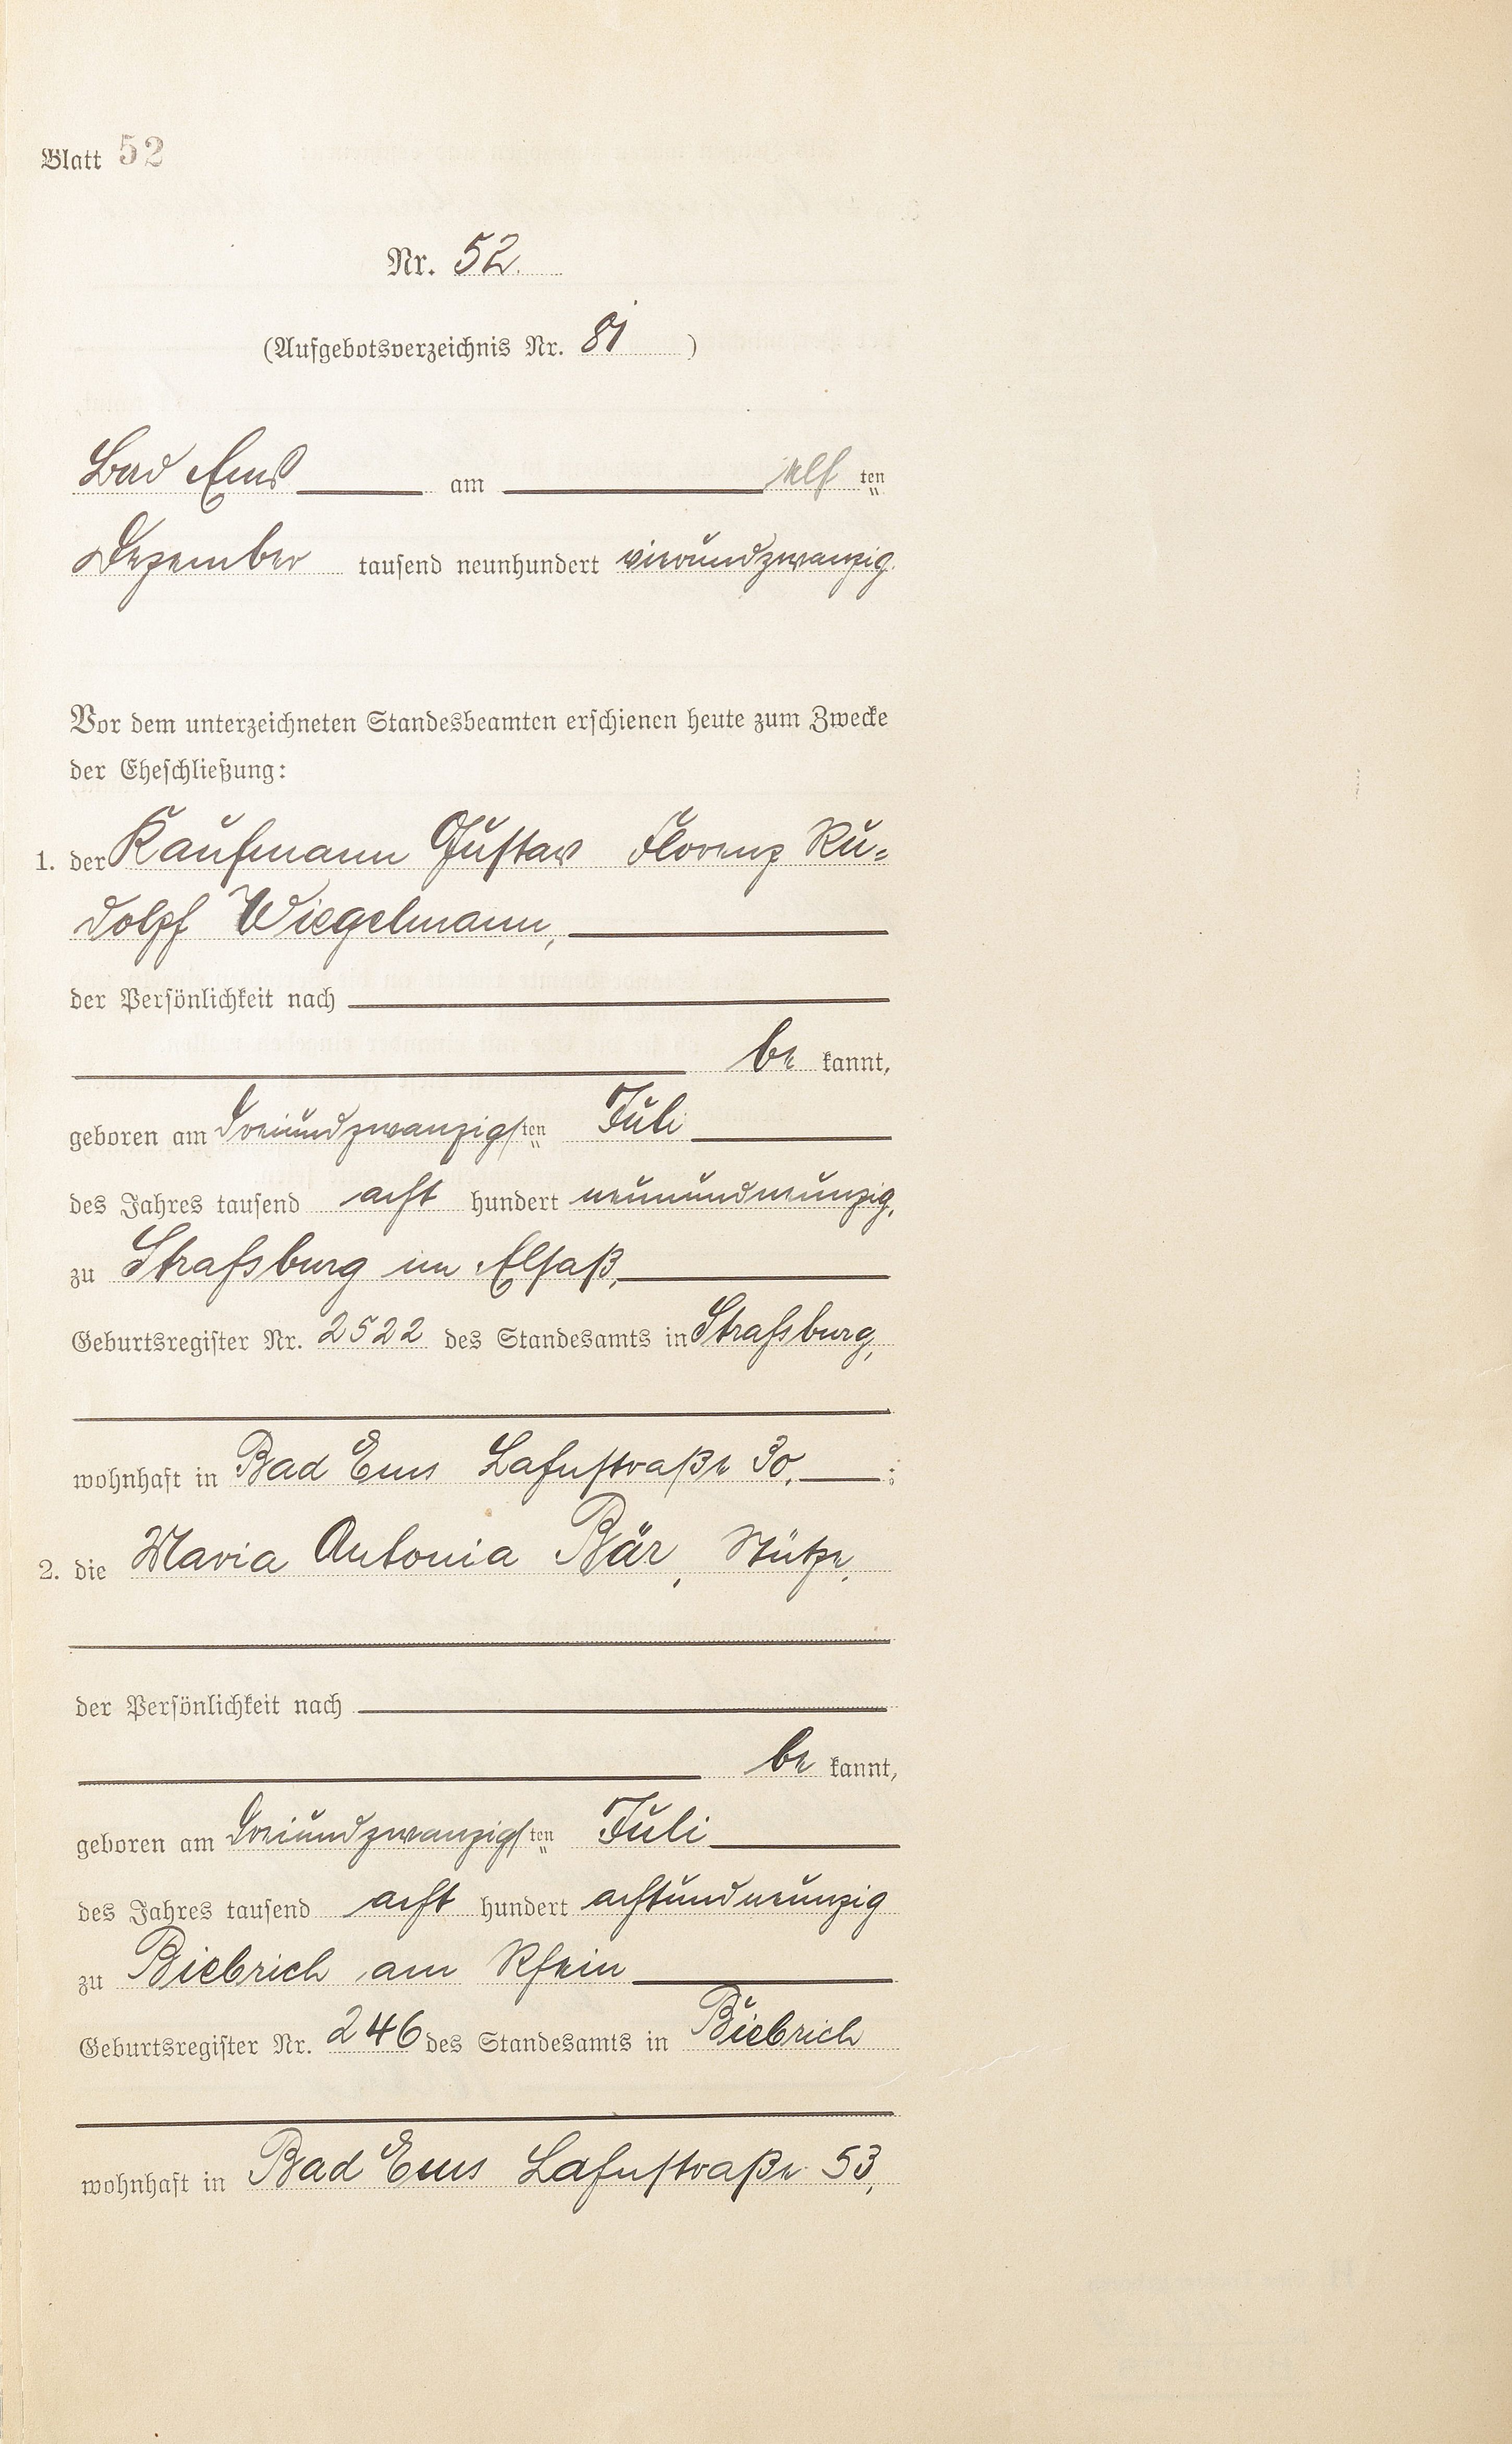 Blatt 52
Nr. 52.
(Aufgebotsverzeichnis Nr. 81)
Bad Ems am elf ten
Dezember tausend neunhundert vierundzwanzig.
Vor dem unterzeichneten Standesbeamten erschienen heute zum Zwecke
der Eheschließung:
1. der Kaufmann Gustav Florenz Ru-
dolf Wiegelmann,
der Persönlichkeit nach
be kannt,
geboren am dreiundzwanzigsten Juli
des Jahres tausend acht hundert neunundneunzig,
zu Strassburg im Elsaß,
Geburtsregister Nr. 2522 des Standesamts in Strassburg,
wohnhaft in Bad Ems Lahnstraße 30. ;
2. die Maria Antonia Bär, Stütze,
der Persönlichkeit nach
be kannt,
geboren am dreiundzwanzigsten Juli
des Jahres tausend acht hundert achtundneunzig
zu Biebrich am Rhein
Geburtsregister Nr. 246 des Standesamts in Biebrich
wohnhaft in Bad Ems Lahnstraße 53,